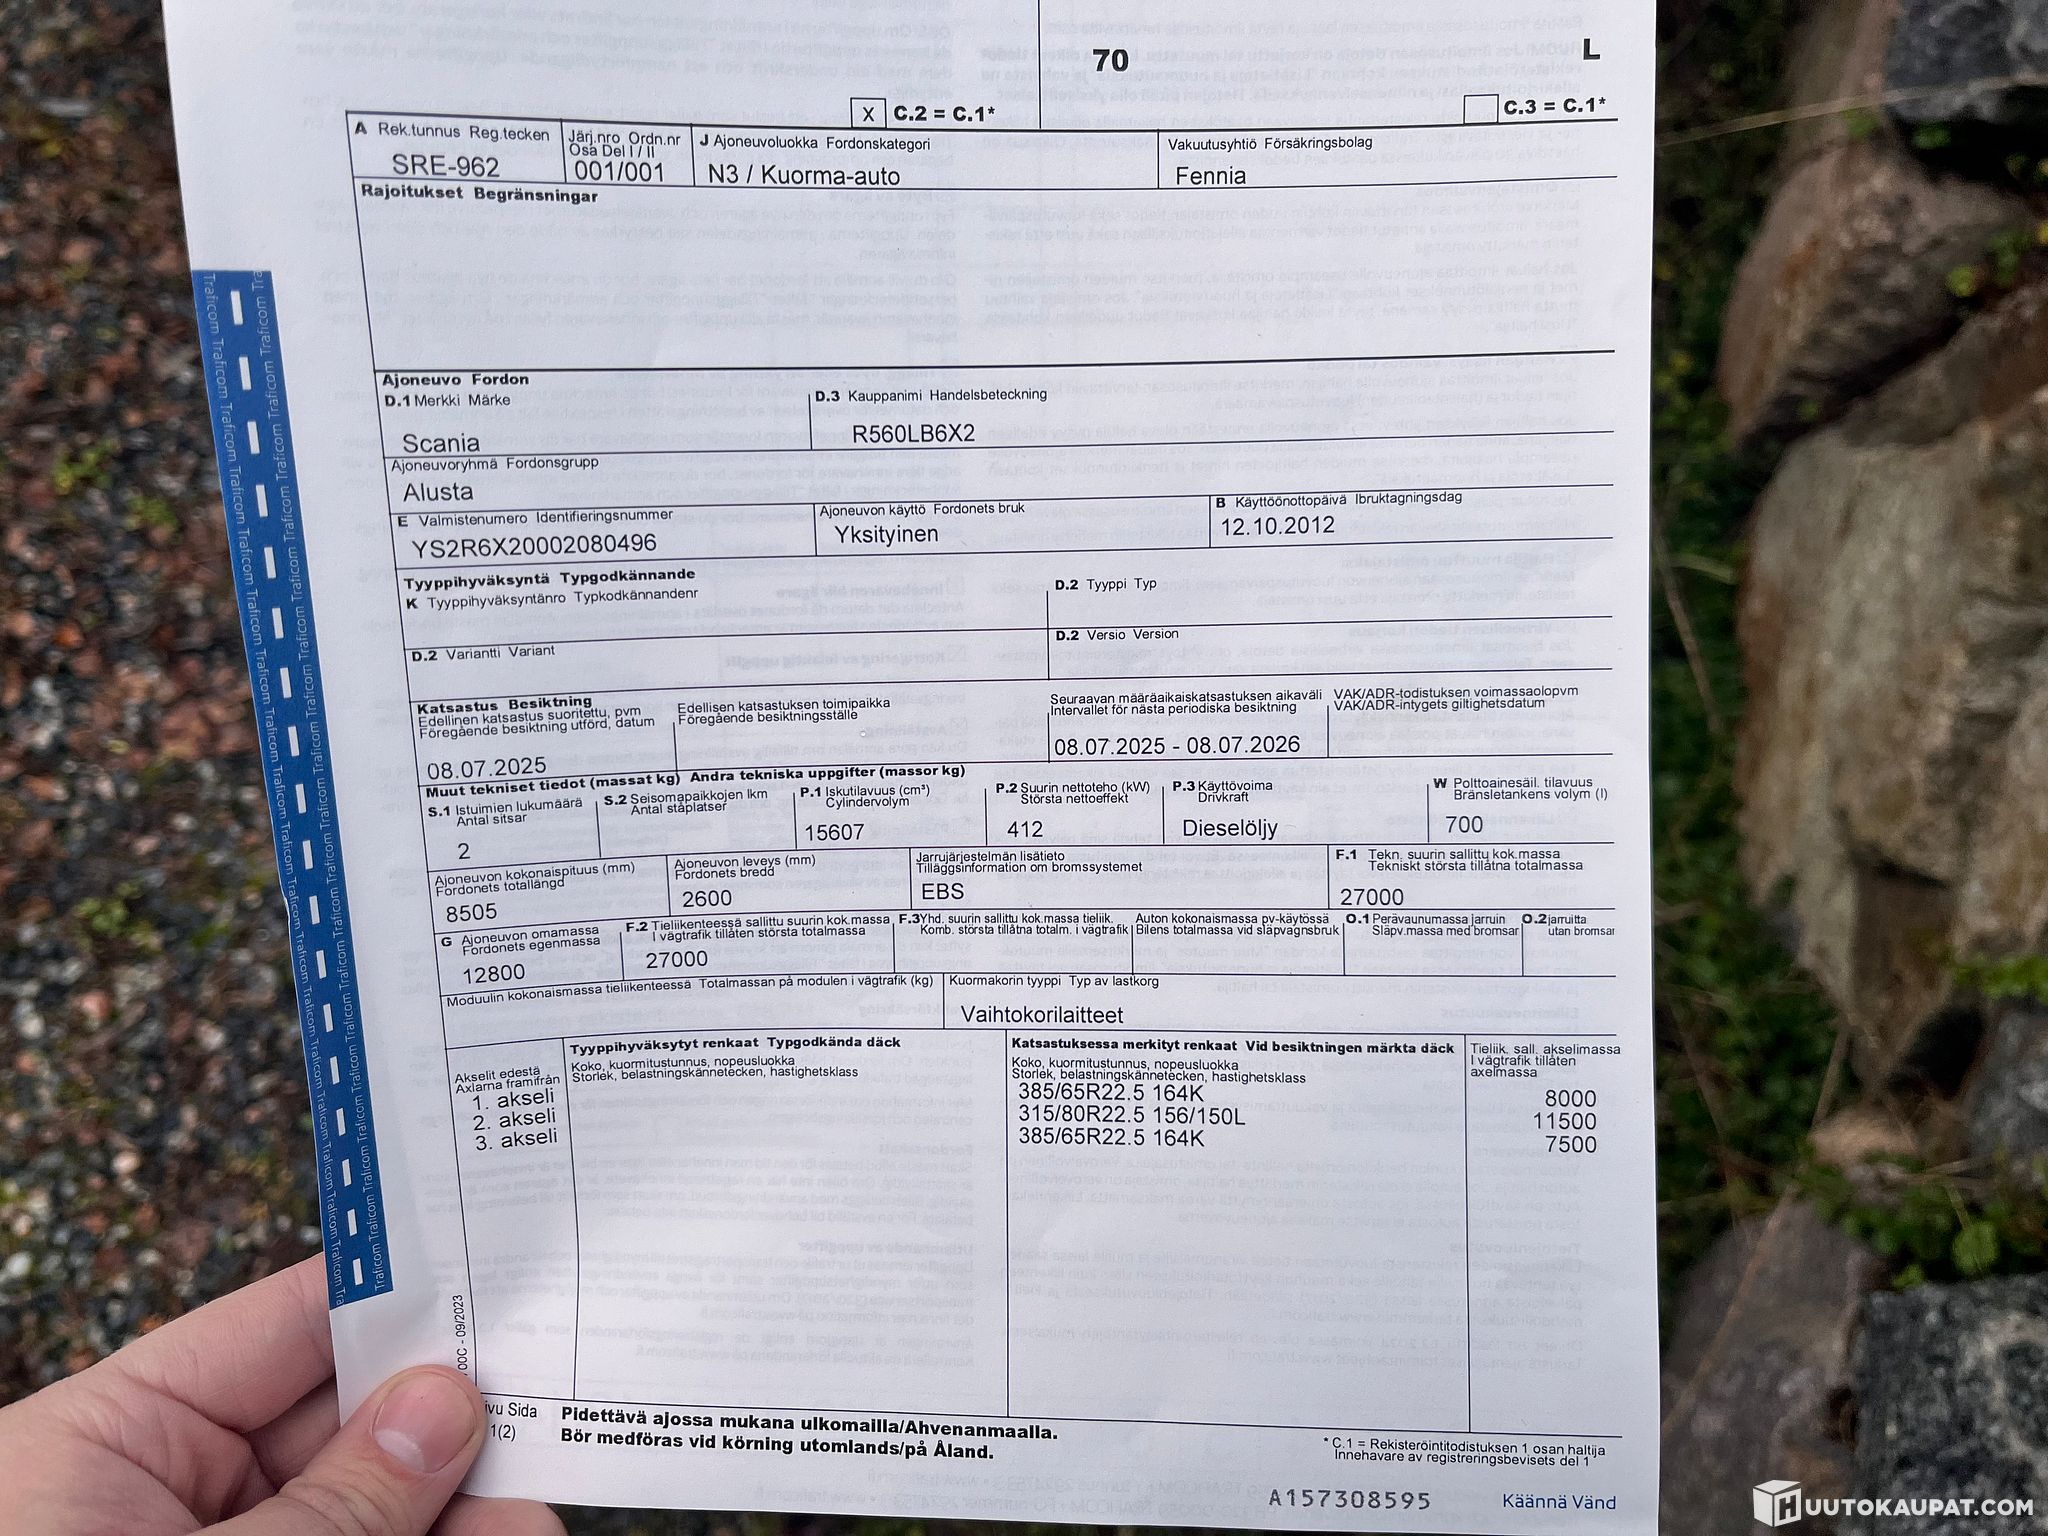 70
L
X C.2 = C.1*
C.3 = C.1*
A Rek.tunnus Reg.tecken
SRE-962
Järj.nro Ordn.nr
Osa Del I / II
001/001
J Ajoneuvoluokka Fordonskategori
N3 / Kuorma-auto
Vakuutusyhtiö Försäkringsbolag
Fennia
Rajoitukset Begränsningar
Ajoneuvo Fordon
D.1 Merkki Märke
Scania
D.3 Kauppanimi Handelsbeteckning
R560LB6X2
Ajoneuvoryhmä Fordonsgrupp
Alusta
E Valmistenumero Identifieringsnummer
YS2R6X20002080496
Ajoneuvon käyttö Fordonets bruk
Yksityinen
B Käyttöönottopäivä Ibruktagningsdag
12.10.2012
Tyyppihyväksyntä Typgodkännande
K Tyyppihyväksyntänro Typkodkännandenr
D.2 Tyyppi Typ
D.2 Variantti Variant
D.2 Versio Version
Katsastus Besiktning
Edellinen katsastus suoritettu, pvm
Föregående besiktning utförd, datum
08.07.2025
Edellisen katsastuksen toimipaikka
Föregående besiktningsställe
Seuraavan määräaikaiskatsastuksen aikaväli
Intervallet för nästa periodiska besiktning
08.07.2025 - 08.07.2026
VAK/ADR-todistuksen voimassaolopvm
VAK/ADR-intygets giltighetsdatum
Muut tekniset tiedot (massat kg) Andra tekniska uppgifter (massor kg)
S.1 Istuimien lukumäärä
Antal sitsar
2
S.2 Seisomapaikkojen lkm
Antal ståplatser
P.1 Iskutilavuus (cm³)
Cylindervolym
15607
P.2 Suurin nettoteho (kW)
Största nettoeffekt
412
P.3 Käyttövoima
Drivkraft
Dieselöljy
W Polttoainesäil. tilavuus
Bränsletankens volym (l)
700
Ajoneuvon kokonaispituus (mm)
Fordonets totallängd
8505
Ajoneuvon leveys (mm)
Fordonets bredd
2600
Jarrujärjestelmän lisätieto
Tilläggsinformation om bromssystemet
EBS
F.1 Tekn. suurin sallittu kok.massa
Tekniskt största tillåtna totalmassa
27000
G Ajoneuvon omamassa
Fordonets egenmassa
12800
F.2 Tieliikenteessä sallittu suurin kok.massa
I vägtrafik tillåten största totalmassa
27000
F.3 Yhd. suurin sallittu kok.massa tieliik.
Komb. största tillåtna totalm. i vägtrafik
Auton kokonaismassa pv-käytössä
Bilens totalmassa vid släpvagnsbruk
O.1 Perävaunumassa jarruin
Släpv.massa med bromsar
O.2 jarruitta
utan bromsar
Moduulin kokonaismassa tieliikenteessä Totalmassan på modulen i vägtrafik (kg)
Kuormakorin tyyppi Typ av lastkorg
Vaihtokorilaitteet
Akselit edestä
Axlarna framifrån
Tyyppihyväksytyt renkaat Typgodkända däck
Koko, kuormitustunnus, nopeusluokka
Storlek, belastningskännetecken, hastighetsklass
Katsastuksessa merkityt renkaat Vid besiktningen märkta däck
Koko, kuormitustunnus, nopeusluokka
Storlek, belastningskännetecken, hastighetsklass
Tieliik. sall. akselimassa
I vägtrafik tillåten
axelmassa
1. akseli 385/65R22.5 164K 8000
2. akseli 315/80R22.5 156/150L 11500
3. akseli 385/65R22.5 164K 7500
Traficom Traficom Traficom Traficom Traficom Traficom Traficom Traficom Traficom Traficom
00C - 09/2023
Sida
1(2)
Pidettävä ajossa mukana ulkomailla/Ahvenanmaalla.
Bör medföras vid körning utomlands/på Åland.
* C.1 = Rekisteröintitodistuksen 1 osan haltija
Innehavare av registreringsbevisets del 1
A157308595
Käännä Vänd
HUUTOKAUPAT.COM